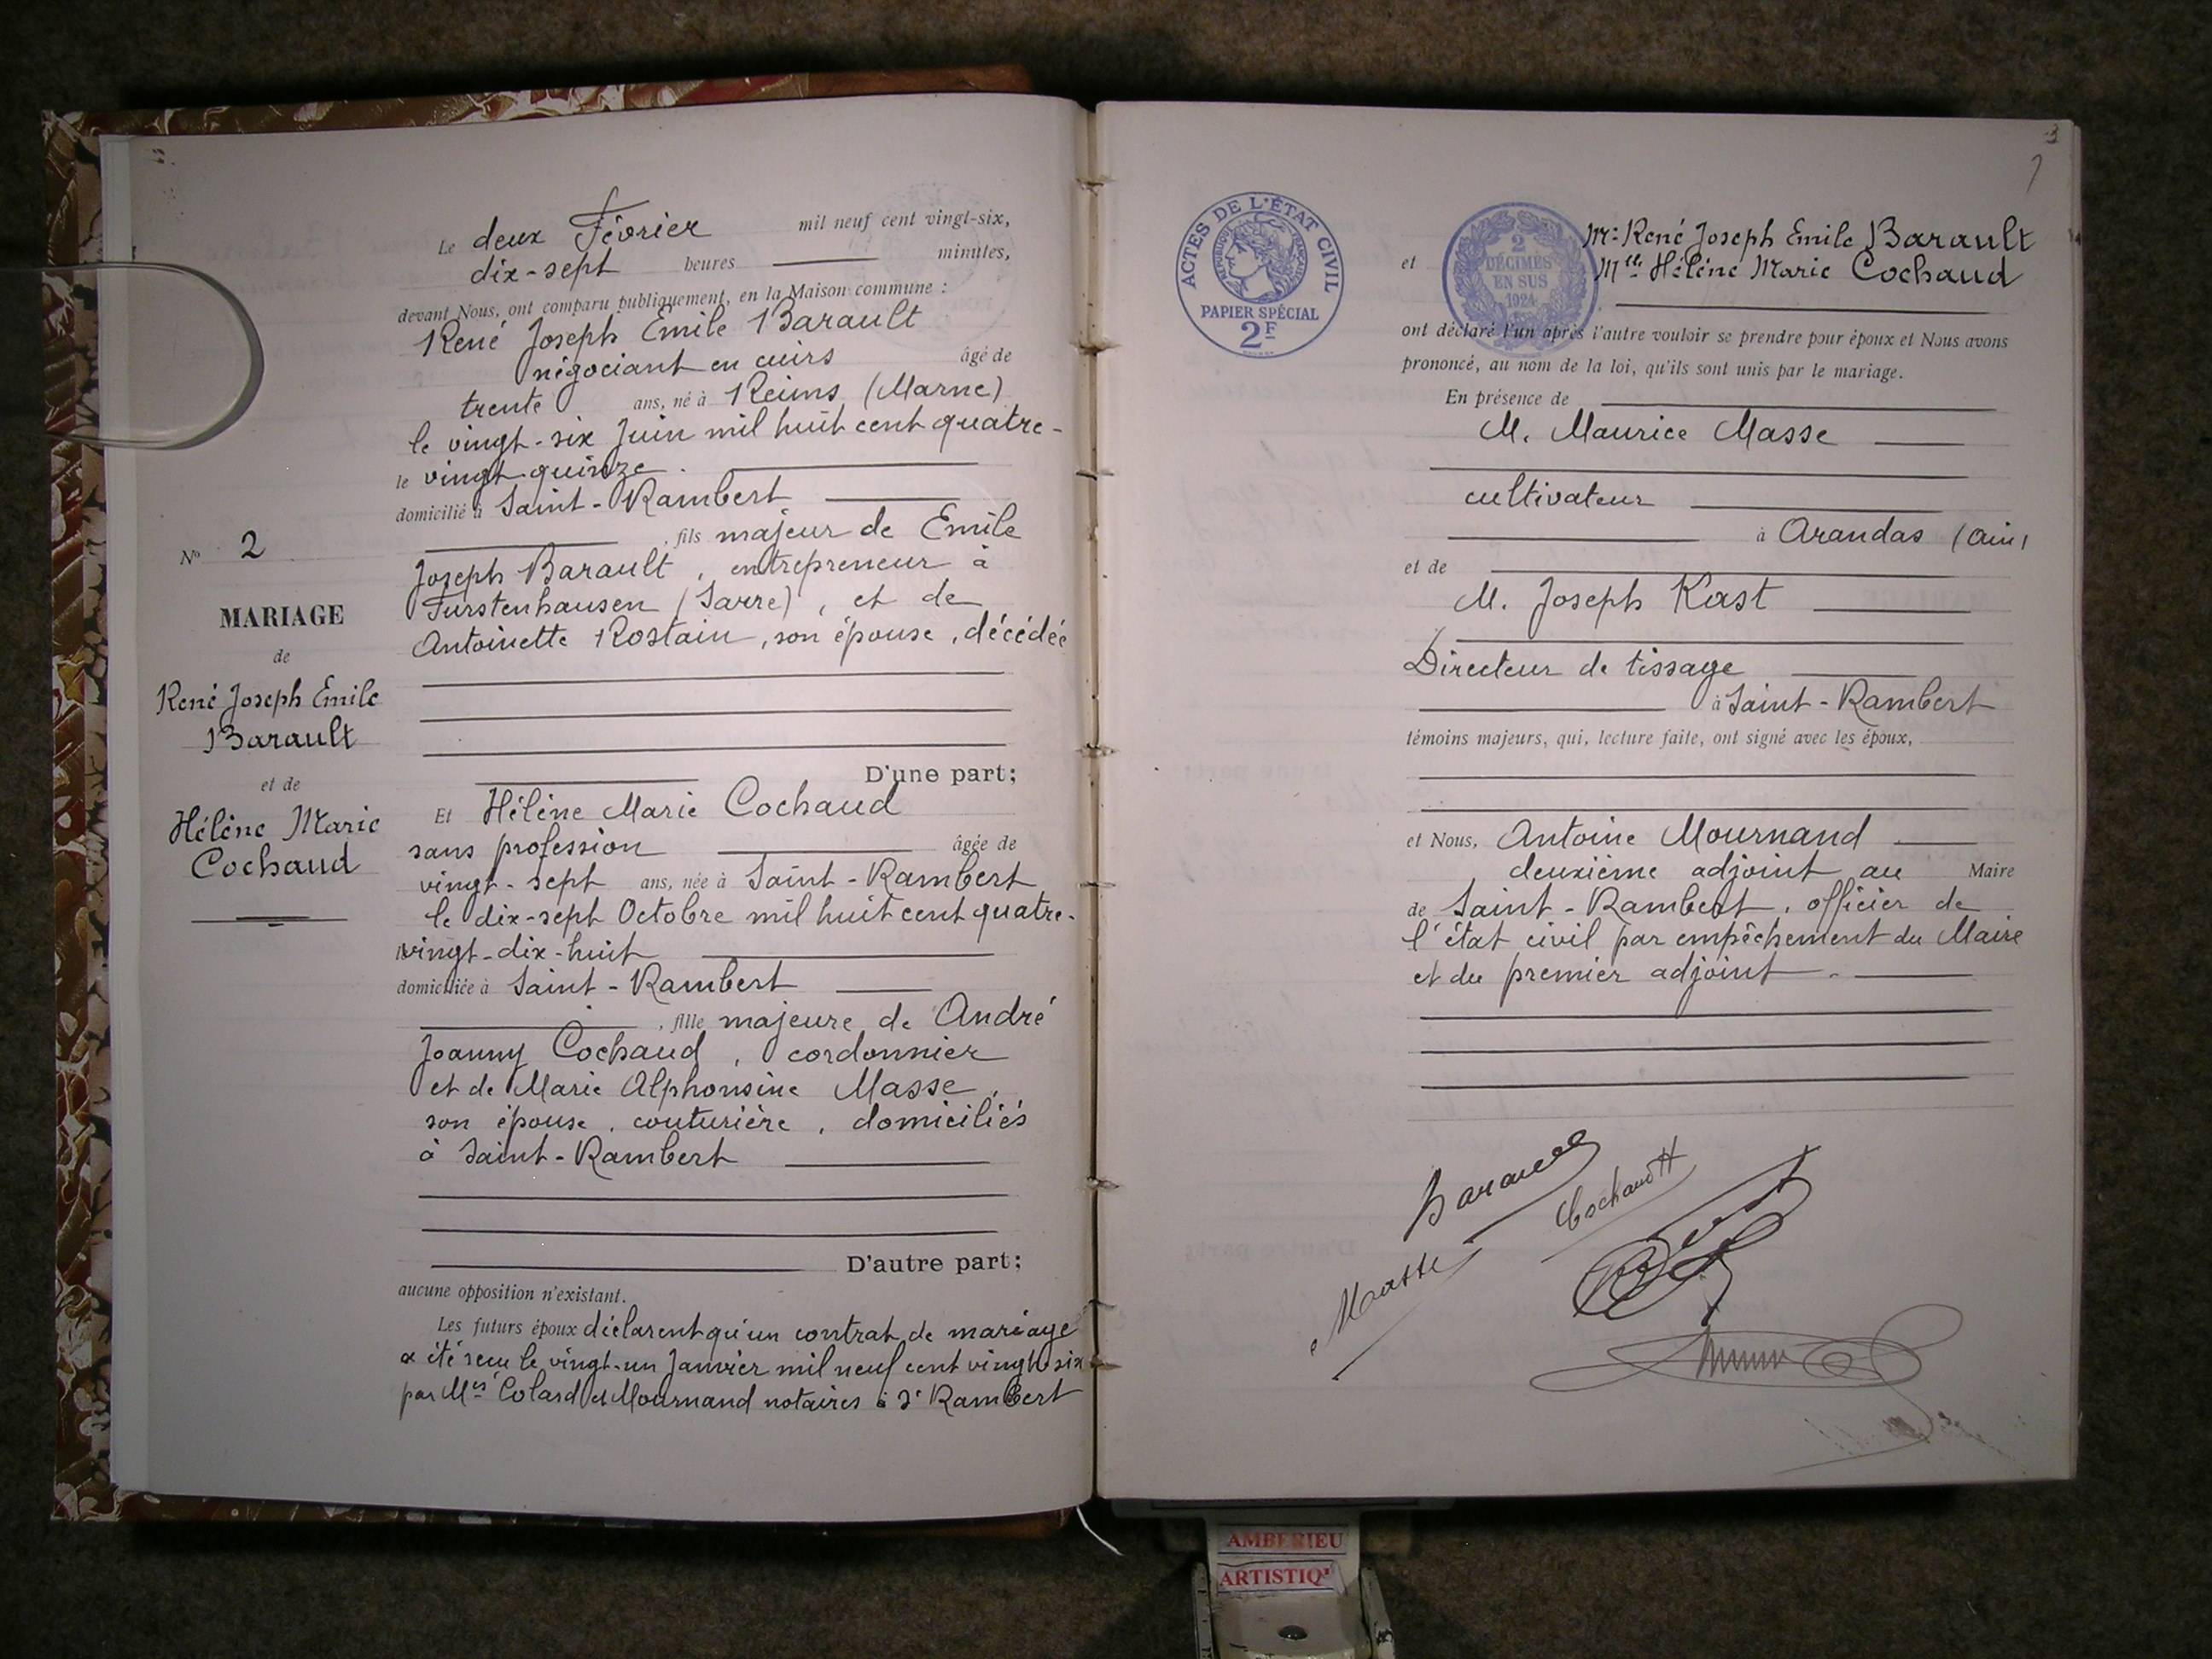 Le deux Février mil neuf cent vingt-six,
dix-sept heures minutes,
devant Nous, ont comparu publiquement, en la Maison commune :
René Joseph Émile Barault
négociant en cuirs âgé de
trente ans, né à Reims (Marne)
le vingt-six Juin mil huit cent quatre-
le vingt quinze.
domicilié à Saint-Rambert
, fils majeur de Emile
Joseph Barault, entrepreneur à
Furstenhausen (Sarre), et de
Antoinette Rostain, son épouse, décédée
D'une part;
Et Hélène Marie Cochaud
sans profession âgée de
vingt-sept ans, née à Saint-Rambert
le dix-sept Octobre mil huit cent quatre-
vingt-dix-huit
domiciliée à Saint-Rambert
, fille majeure de André
Joanny Cochaud, cordonnier
et de Marie Alphonsine Masse,
son épouse, couturière, domiciliés
à Saint-Rambert
D'autre part;
aucune opposition n'existant.
Les futurs époux déclarent qu'un contrat de mariage
a été reçu le vingt-un Janvier mil neuf cent vingt-six
par Mes Colard et Mournand notaires à St Rambert
No 2
MARIAGE
de
René Joseph Emile
Barault
et de
Hélène Marie
Cochaud
3
ACTES DE L'ÉTAT CIVIL
RÉPUBLIQUE FRANÇAISE
PAPIER SPÉCIAL
2F
2
DÉCIMES
EN SUS
1924
Mr René Joseph Emile Barault
et Mlle Hélène Marie Cochaud
ont déclaré l'un après l'autre vouloir se prendre pour époux et Nous avons
prononcé, au nom de la loi, qu'ils sont unis par le mariage.
En présence de
M. Maurice Masse
cultivateur
à Arandas (Ain)
et de
M. Joseph Kast
Directeur de tissage
à Saint-Rambert
témoins majeurs, qui, lecture faite, ont signé avec les époux,
et Nous, Antoine Mournand
deuxième adjoint au Maire
de Saint-Rambert, officier de
l'état civil par empêchement du Maire
et du premier adjoint.
Barault
Cochaud H
Masse
AMBERIEU
ARTISTIQ